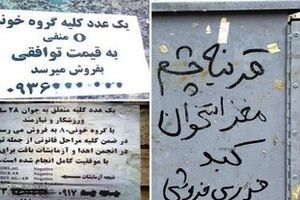 یک عدد کلیه گروه خونی
O منفی
به قیمت توافقی
بفروش میرسد
یک عدد کلیه متعلق به جوان ۲۸ سا
ورزشکار و نیازمند
با گروه خونی ۸۰ به فروش می رسد
در ضمن کلیه مراحل قانونی از تاییدیه
در انجمن اهدا و آزمایشات بافت برای
با موفقیت کامل انجام شده است
نتیجه آزمایشات
Negative
Negative
Negative
قرنیه چشم
مغز استخوان
کبد
فوری فروشی